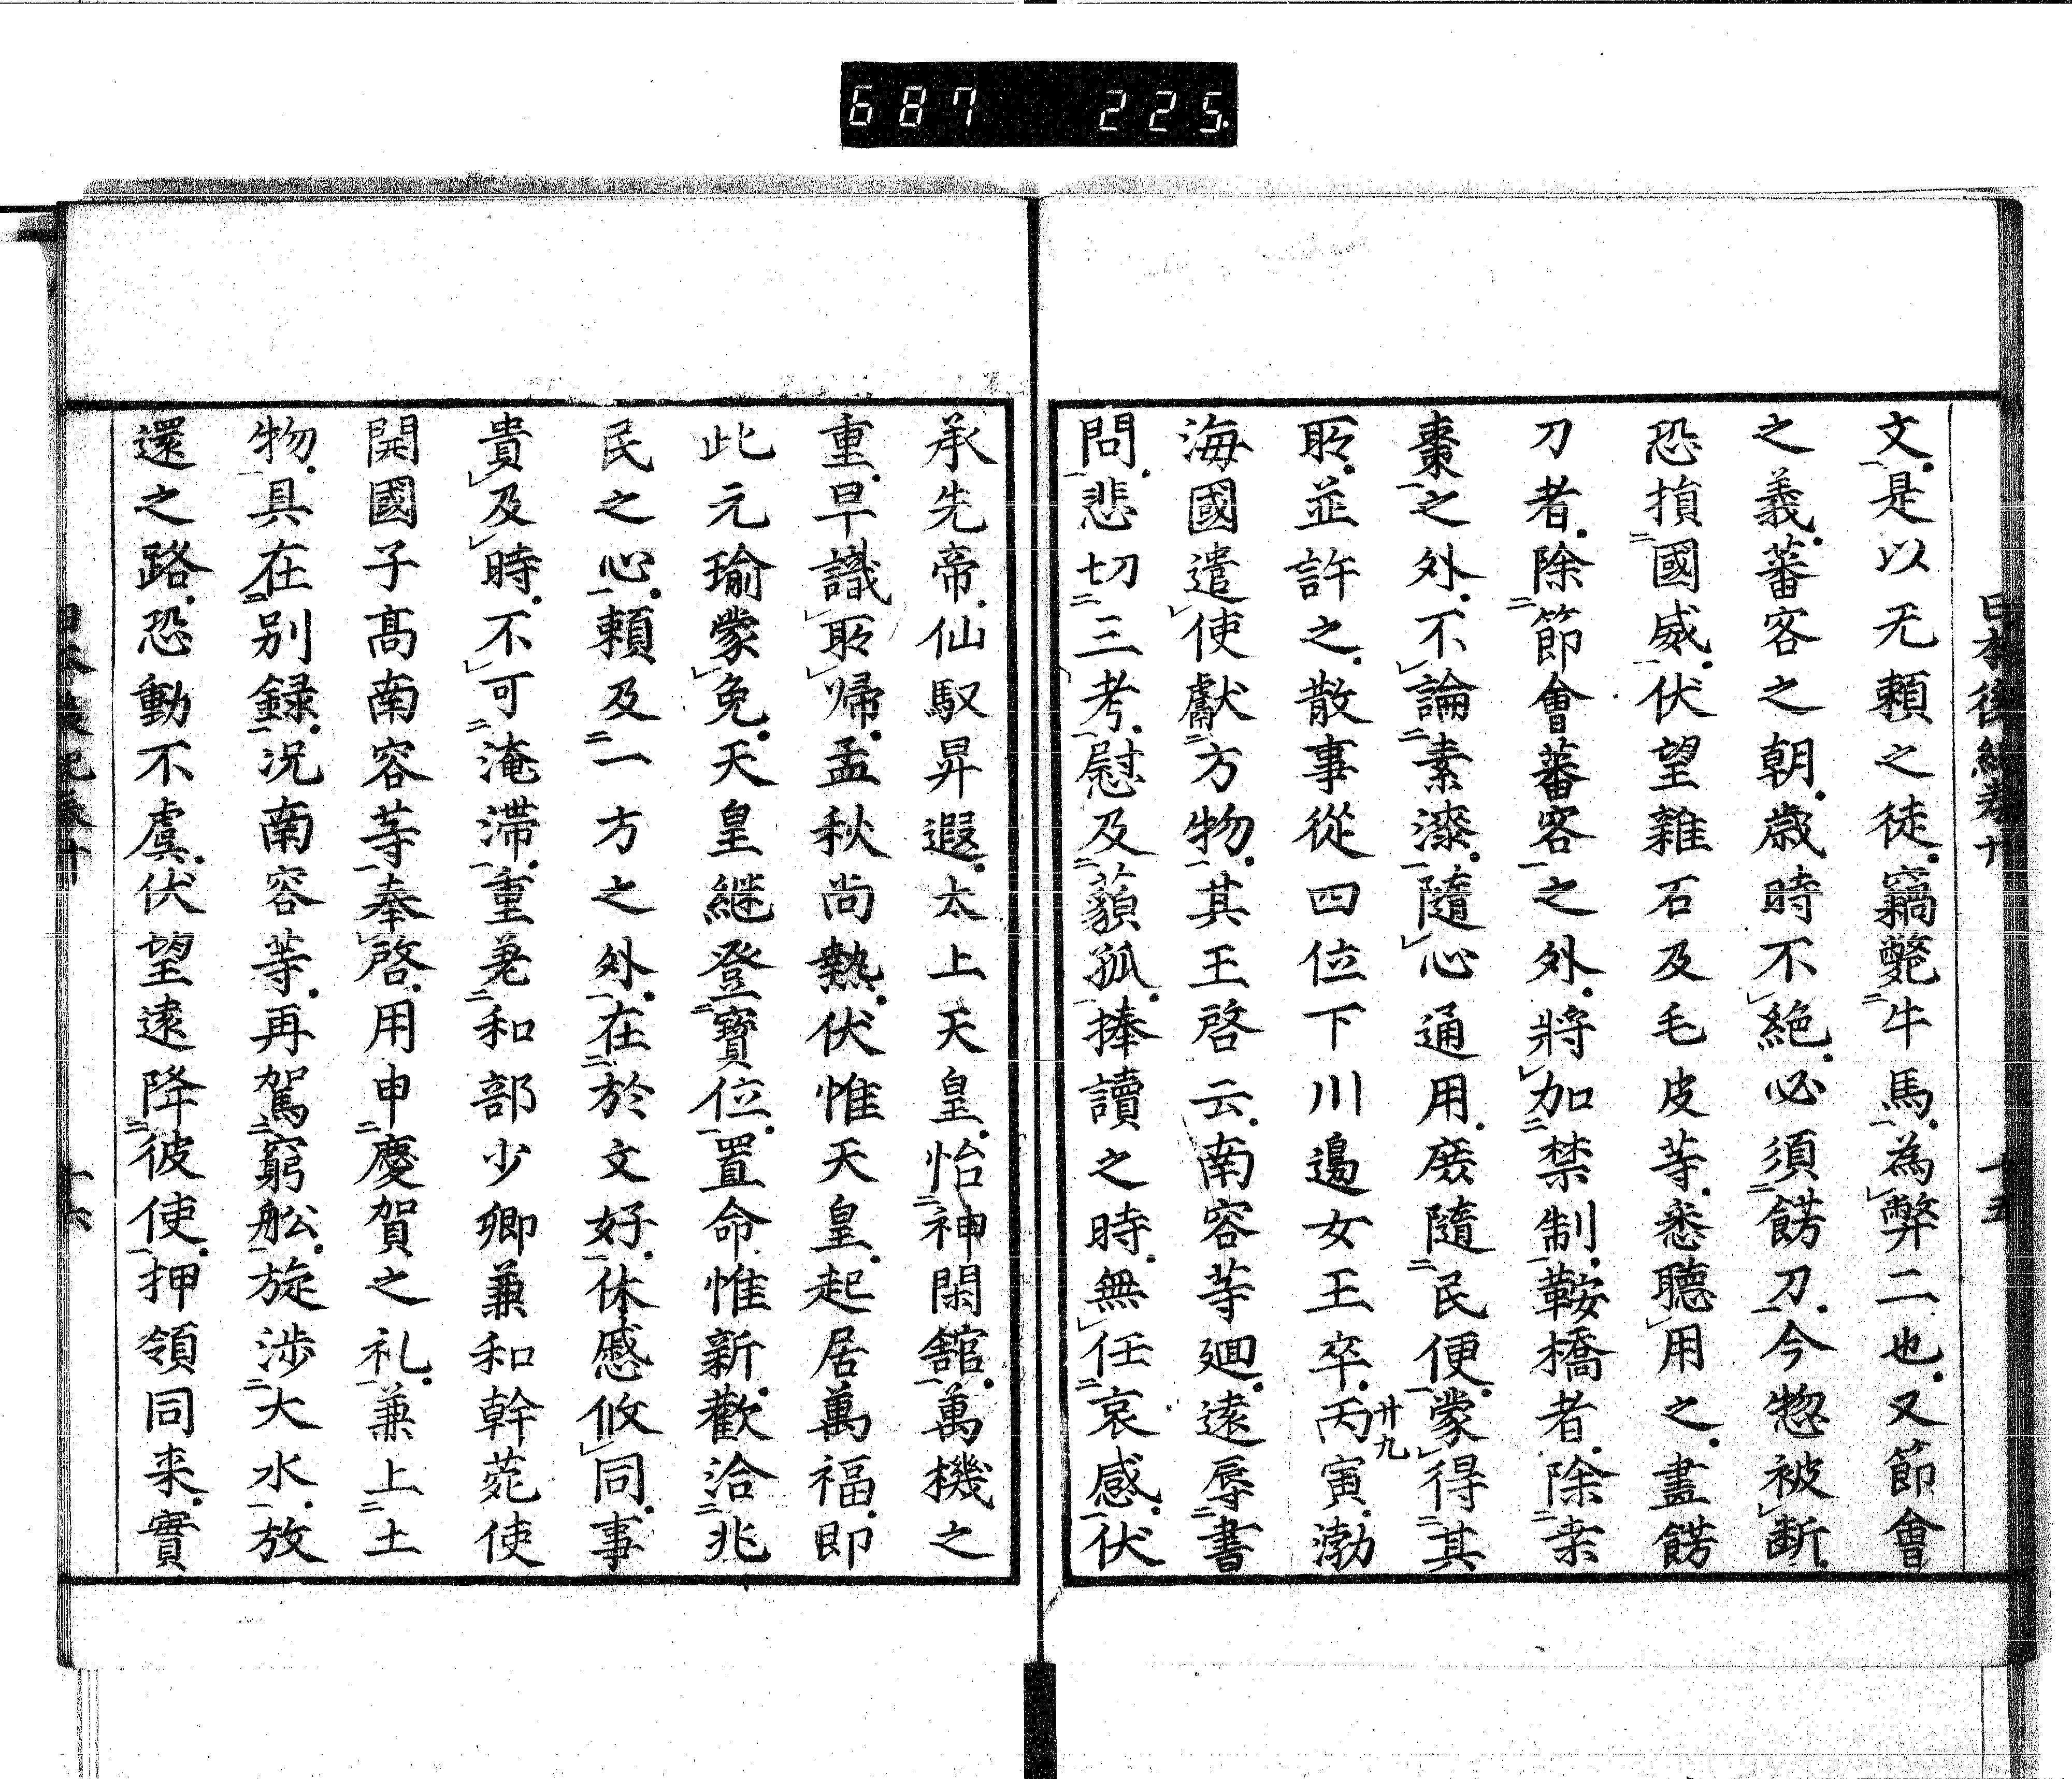 687 225
日本後紀卷廿 十五
文是以无頼之徒竊斃牛馬為弊二也又節會
之義蕃客之朝歳時不絶必須餝刀今惣被断
恐損國威伏望雜石及毛皮等悉聽用之畫餝
刀者除節會蕃客之外將加禁制鞍橋者除桒
棗之外不論素漆随心通用庻隨民便蒙得其
所並許之散事從四位下川邊女王卒丙寅渤
廿九
海國遣使獻方物其王啓云南容等廻遠辱書
問悲切三考慰及藐孤捧讀之時無任哀感伏
承先帝仙馭昇遐太上天皇怡神閑舘萬機之
重早識所帰孟秋尚熱伏惟天皇起居萬福即
此元瑜蒙免天皇継登寳位置命惟新歡洽兆
民之心頼及一方之外在於文好休慼攸同事
貴及時不可淹滞重差和部少卿兼和幹菀使
開國子髙南容等奉啓用申慶賀之礼兼上土
物具在别録况南容等再駕窮舩旋渉大水放
還之路恐動不虞伏望遠降彼使押領同来實
日本後紀卷廿 十六